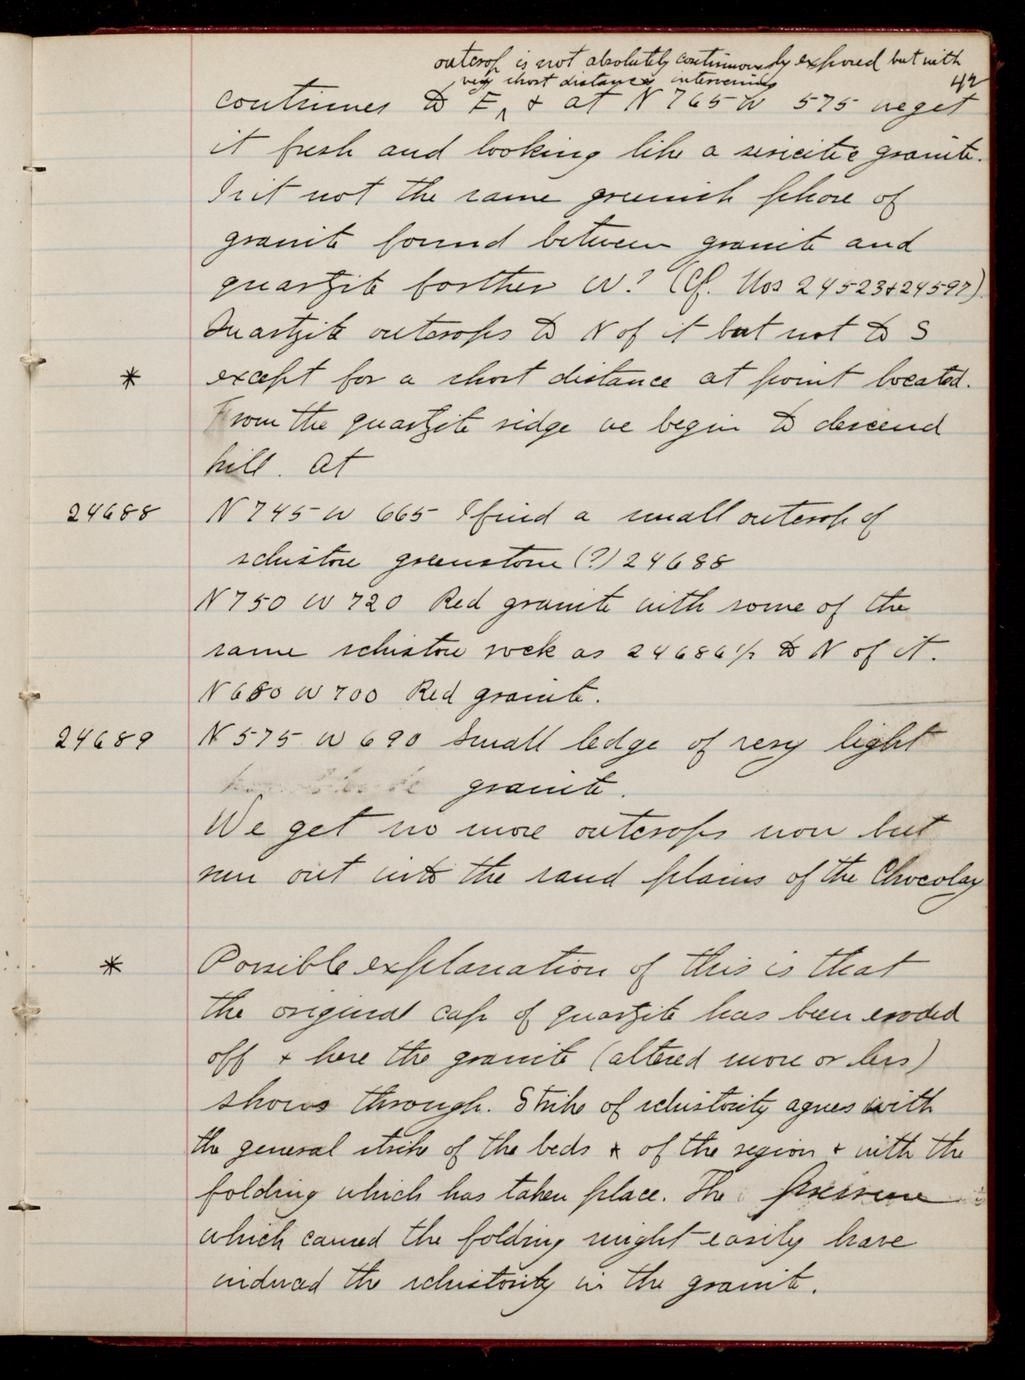 outcrop is not absolutely continuously exposed but with
very short distances intervening
42
continues to E ^ & at N 765 W 575 we get
it fresh and looking like a sericitic granite.
Is it not the same greenish phase of
granite found between granite and
quartzite farther W? (Cf. Nos 24523 & 24597)
Quartzite outcrops to N of it but not to S
* except for a short distance at point located.
From the quartzite ridge we begin to descend
hill. At
24688 N 745 W 665 I find a small outcrop of
schistose greenstone (?) 24688
N 750 W 720 Red granite with some of the
same schistose rock as 24686 1/2 to N of it.
N 680 W 700 Red granite.
24689 N 575 W 690 Small ledge of very light
granite.
We get no more outcrops now but
run out into the sand plains of the Chocolay
* Possible explanation of this is that
the original cap of quartzite has been eroded
off & here the granite (altered more or less)
shows through. Strike of schistosity agrees with
the general strike of the beds & of the region & with the
folding which has taken place. The pressure
which caused the folding might easily have
induced the schistosity in the granite.